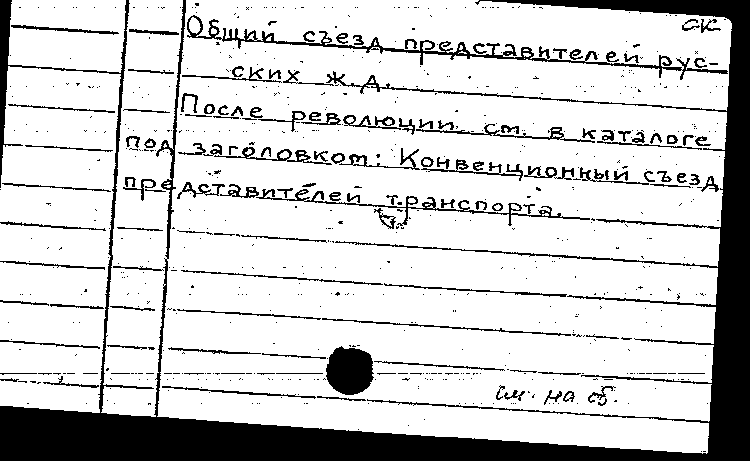 СК
Общий съезд представителей рус-
ских ж.д.
После революции см. в каталоге
под заголовком: Конвенционный съезд
представителей транспорта.
См. на об.